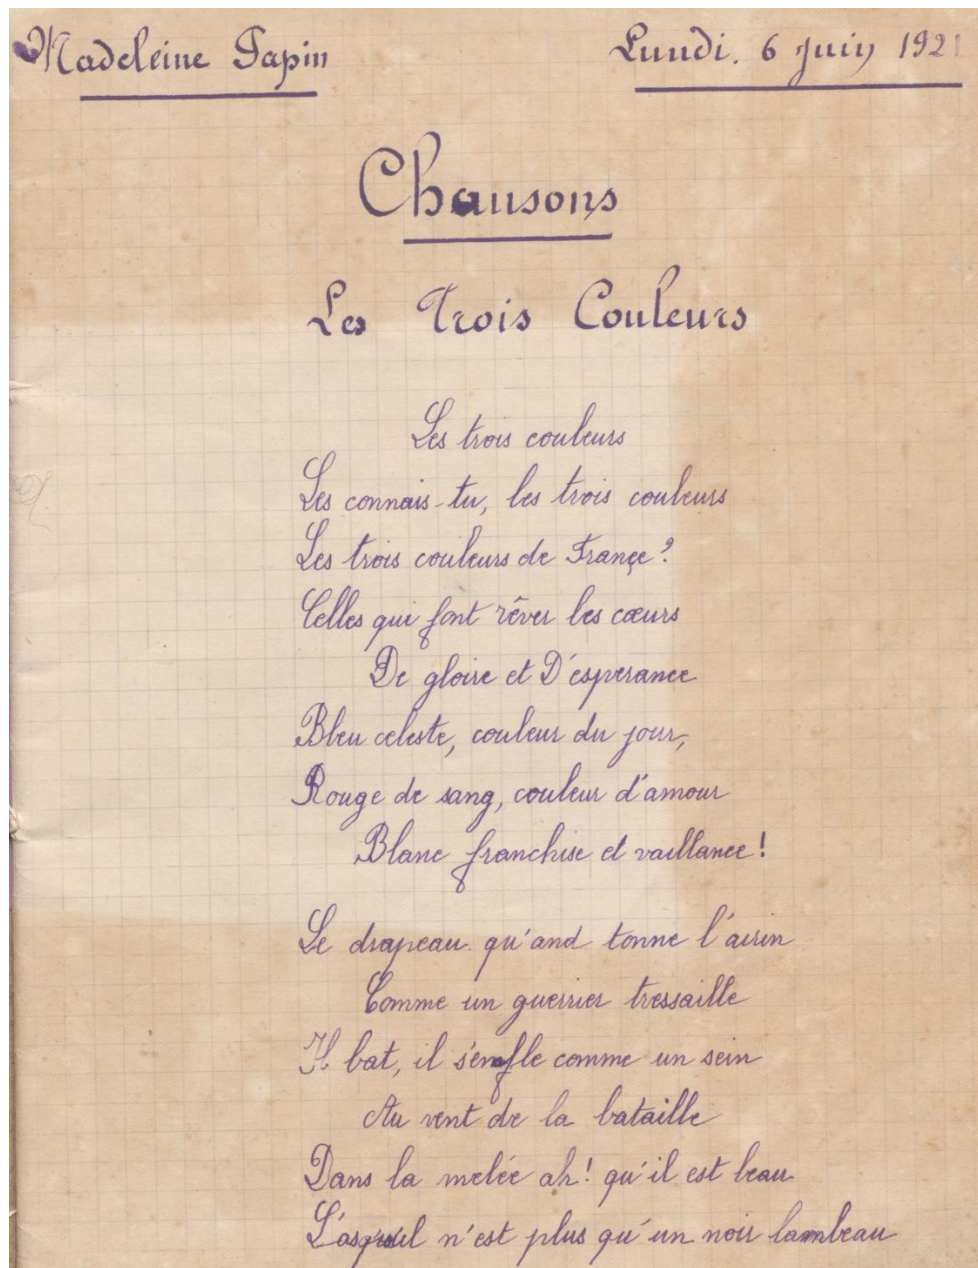 Madeleine Papin
Lundi. 6 Juin 1921
Chansons
Les Trois Couleurs
Les trois couleurs
Les connais-tu, les trois couleurs
Les trois couleurs de Françe ?
Celles qui font rêver les cœurs
De gloire et D'esperance
Bleu celeste, couleur du jour,
Rouge de sang, couleur d'amour
Blanc franchise et vaillance !
Le drapeau qu'and tonne l'airin
Comme un guerrier tressaille
Il bat, il s'enfle comme un sein
Au vent de la bataille
Dans la melée ah ! qu'il est beau
n'est plus qu'un noir lambeau